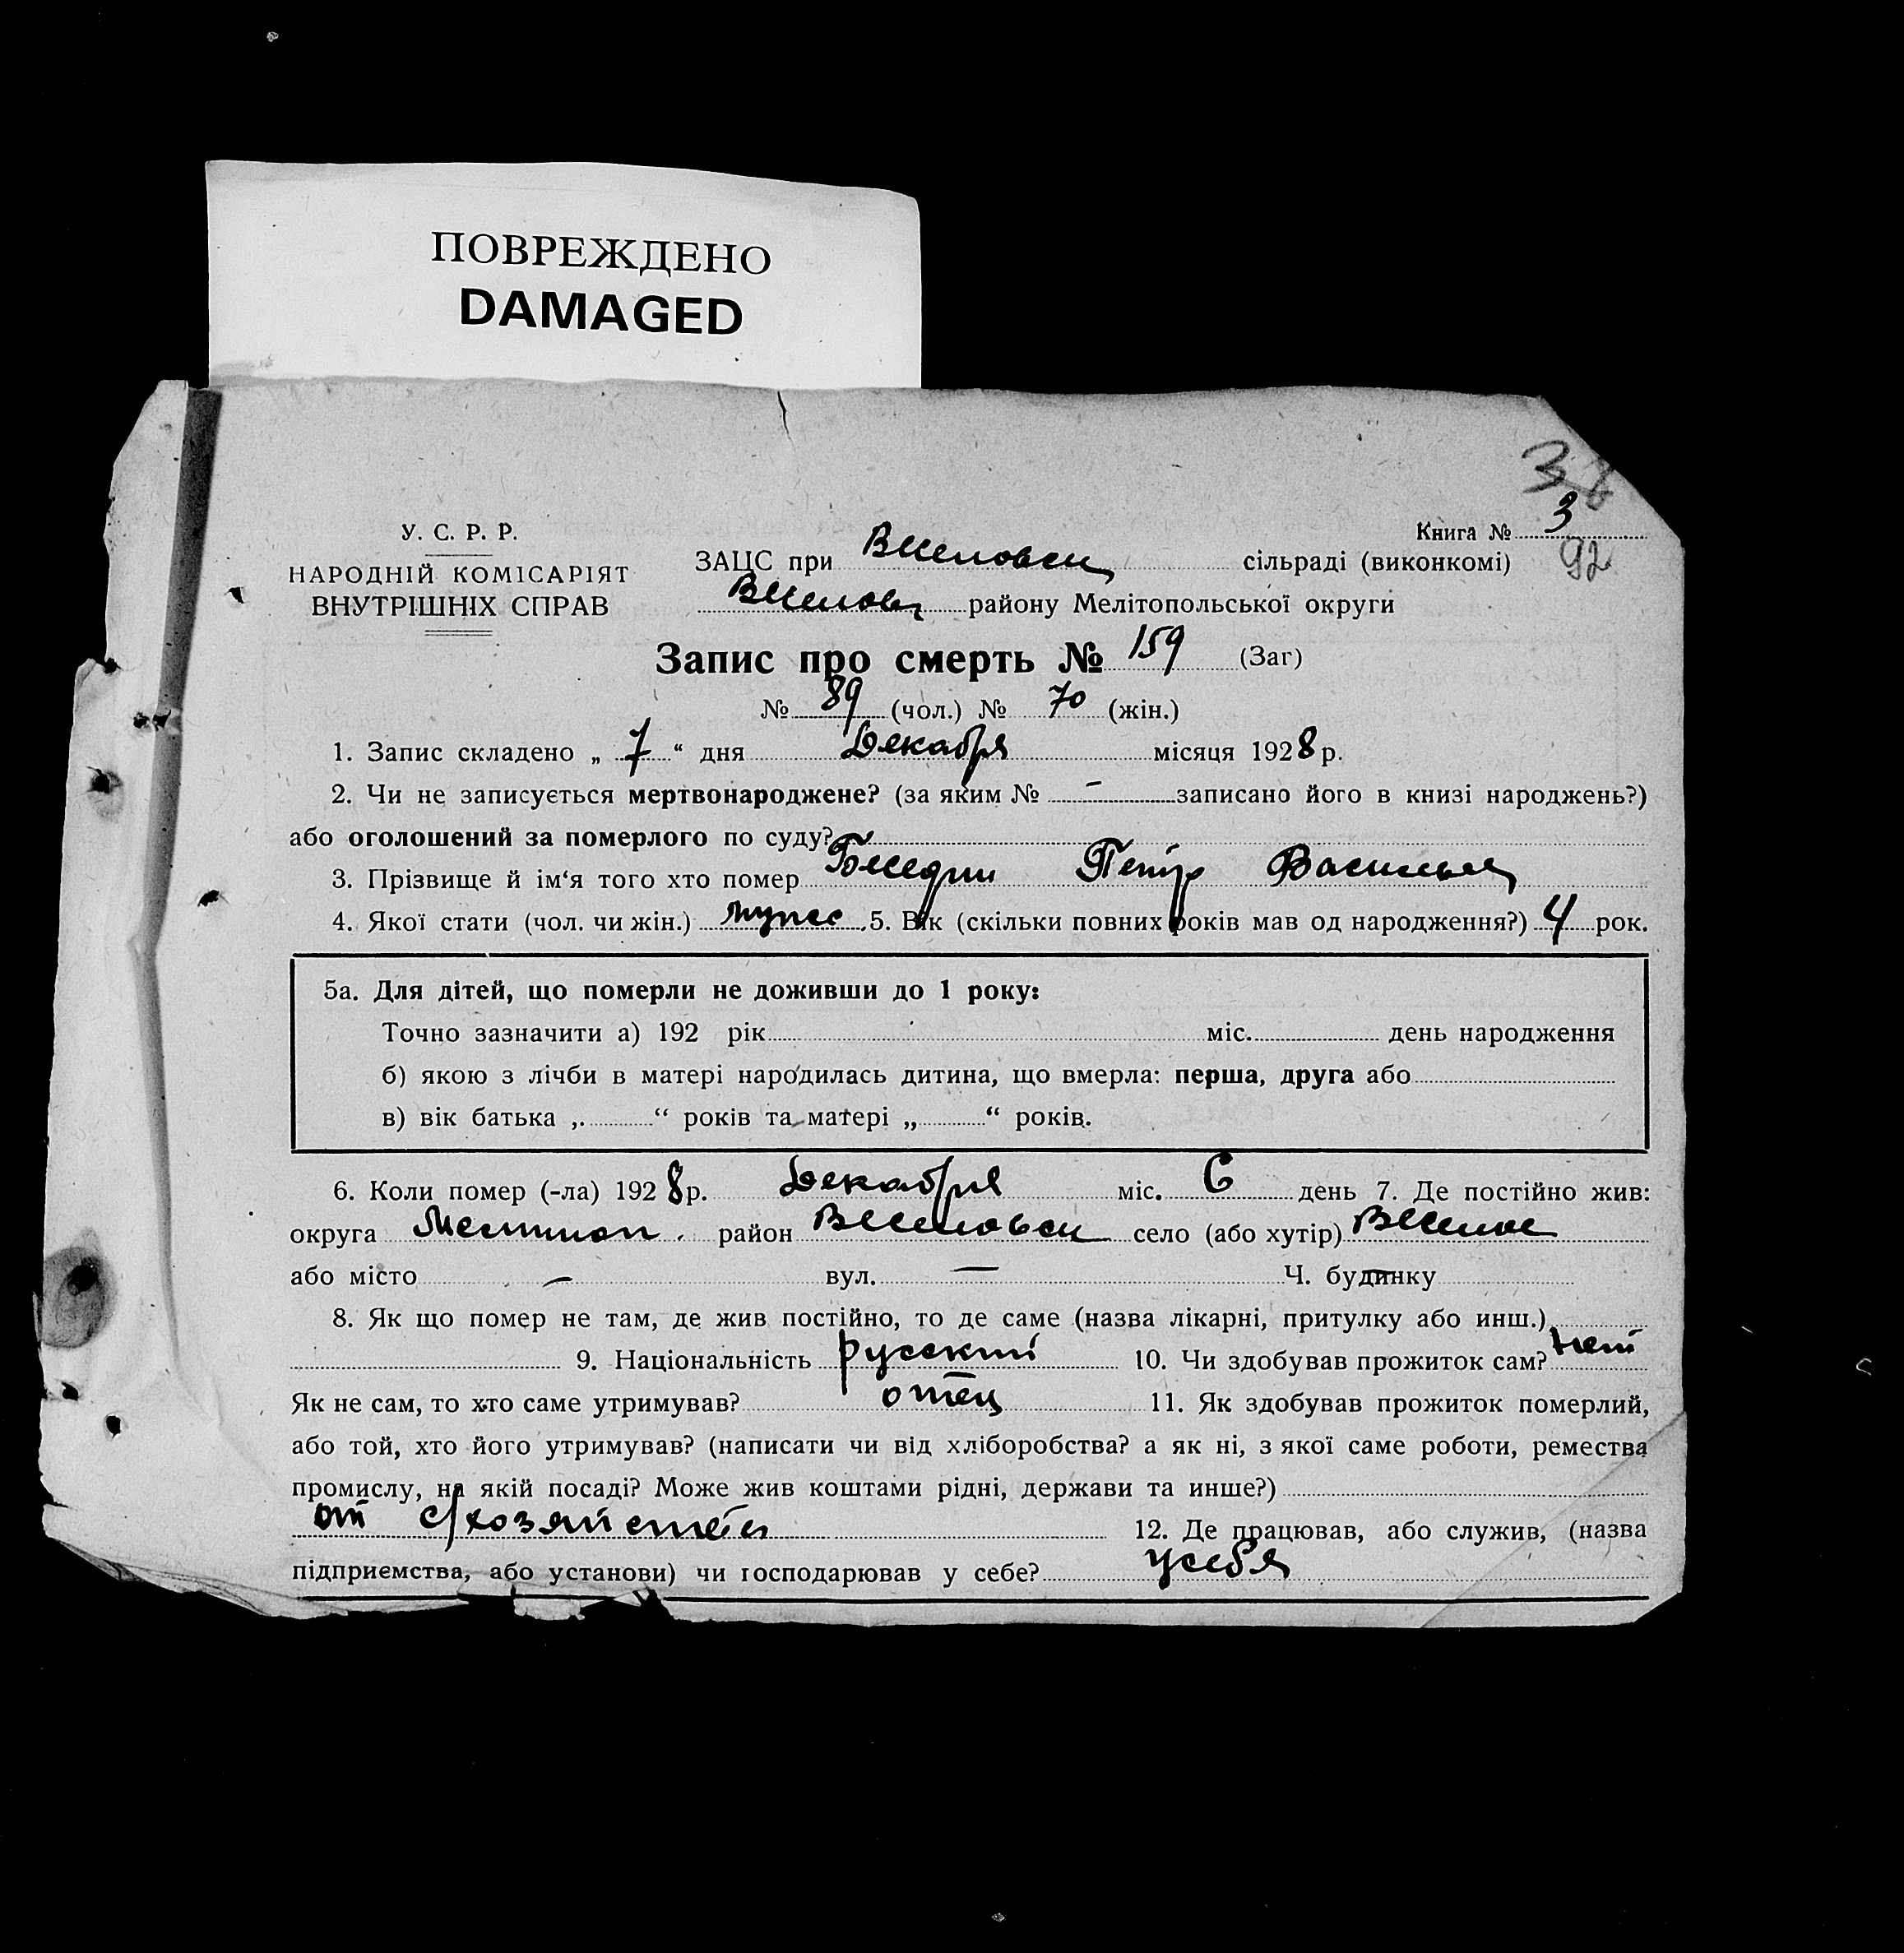 ПОВРЕЖДЕНО
DAMAGED
38
У. С. Р. Р.
НАРОДНІЙ КОМІСАРІЯТ
ВНУТРІШНІХ СПРАВ
Книга № 3
92
ЗАЦС при Веселовск сільраді (виконкомі)
Веселовск району Мелітопольської округи
Запис про смерть № 159 (Заг)
№ 89 (чол.) № 70 (жін.)
1. Запис складено „ 7 “ дня Декабря місяця 1928 р.
2. Чи не записується мертвонароджене? (за яким № – записано його в книзі народжень?)
або оголошений за померлого по суду?
3. Прізвище й ім‘я того хто помер Беседин Петр Василья
4. Якої стати (чол. чи жін.) мужес. 5. Вік (скільки повних років мав од народження?) 4 рок.
5а. Для дітей, що померли не доживши до 1 року:
Точно зазначити а) 192 рік міс. день народження
б) якою з лічби в матері народилась дитина, що вмерла: перша, друга або
в) вік батька „ “ років та матері „ “ років.
6. Коли помер (-ла) 1928 р. Декабря міс. 6 день 7. Де постійно жив:
округа Мелитоп. район Веселовск село (або хутір) Веселое
або місто – вул. – Ч. будинку –
8. Як що помер не там, де жив постійно, то де саме (назва лікарні, притулку або инш.)
9. Національність русский 10. Чи здобував прожиток сам? нет
Як не сам, то хто саме утримував? отец 11. Як здобував прожиток померлий,
або той, хто його утримував? (написати чи від хліборобства? а як ні, з якої саме роботи, ремества
промислу, на якій посаді? Може жив коштами рідні, держави та инше?)
от с/хозяйства 12. Де працював, або служив, (назва
підприємства, або установи) чи господарював у себе? у себя